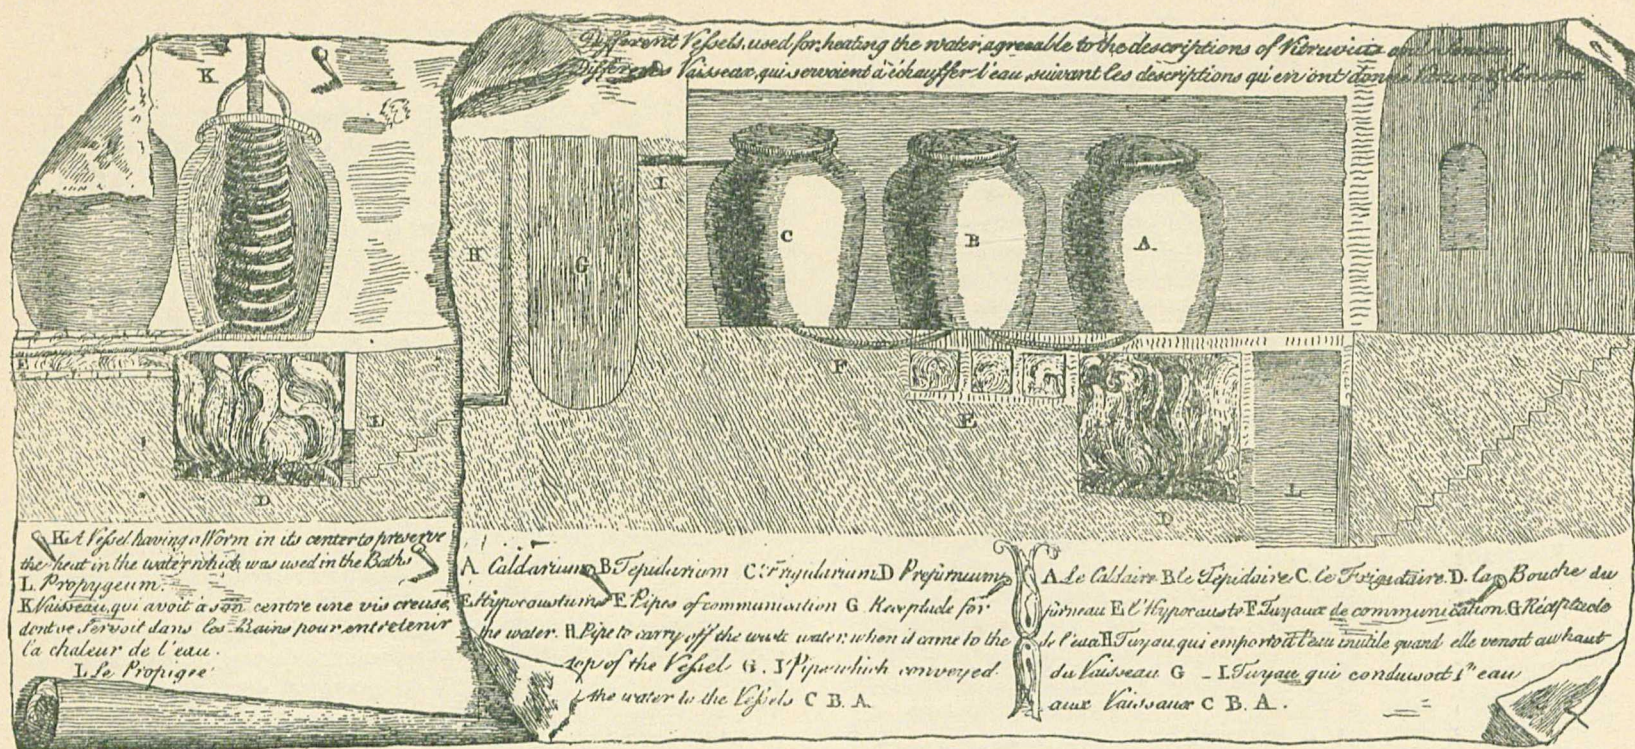 Different Vessels, used for heating the water, agreeable to the descriptions of Vitruvius and Seneca
Differents Vaisseax, qui servoient à échauffer l'eau, suivant les descriptions qui en ont donné Vitruve & Séneque
K
I
H
G
C
B
A.
E
L
D
F
E
L
D
K. A Vessel having a Worm in its center to preserve
the heat in the water which was used in the Baths
L. Propygeum.
K Vaisseau, qui avoit à son centre une vis creuse,
dont ve servoit dans les Bains pour entretenir
la chaleur de l'eau.
L. Le Propigée
A Caldarium B. Tepidarium C. Frigidarium D Prefurneum
E. Hypocaustum F Pipes of communication G. Receptacle for
the water. H. Pipe to carry off the waste water, when it came to the
top of the Vessel G. I Pipe which conveyed
the water to the Vessels C B. A.
A. Le Caldaire B. le Tépidaire C. le Frigidaire. D. la Bouche du
furneau E l'Hypocauste F. Tuyaux de communication. G Réceptacle
de l'eau H Tuyau, qui emportoit l'eau inutile quand elle venoit au haut
du Vaisseau G - I. Tuyau qui conduisoit l'eau
aux Vaisseaux C B. A.